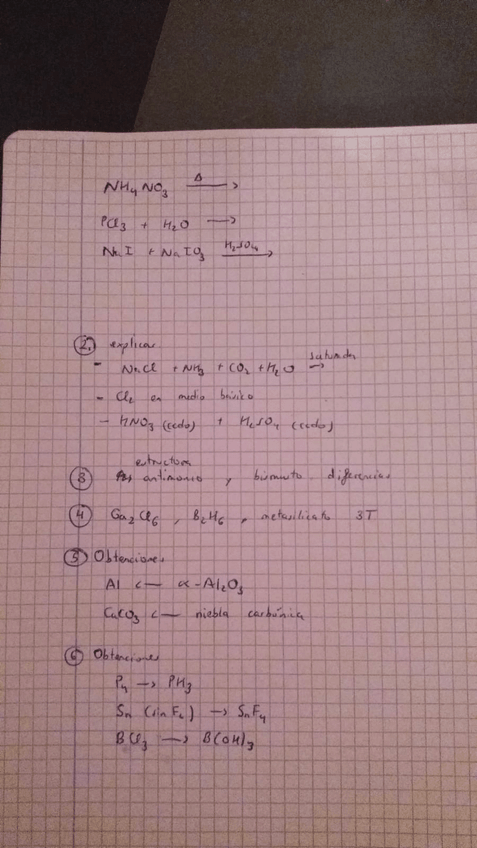 NH4 NO3 —Δ→
PCl3 + H2O →
NaI + NaIO3 —H2SO4→
2. explicar
- NaCl + NH3 + CO2 + H2O —saturada→
- Cl2 en medio básico
- HNO3 (ccdo) + H2SO4 (ccdo)
3 estructura antimonio y bismuto. diferencias
4 Ga2Cl6, B2H6, metasilicato 3T
5 Obtenciones
Al ← α-Al2O3
CaCO3 ← niebla carbónica
6 Obtenciones
P4 → PH3
Sn (sin F2) → SnF4
BCl3 → B(OH)3